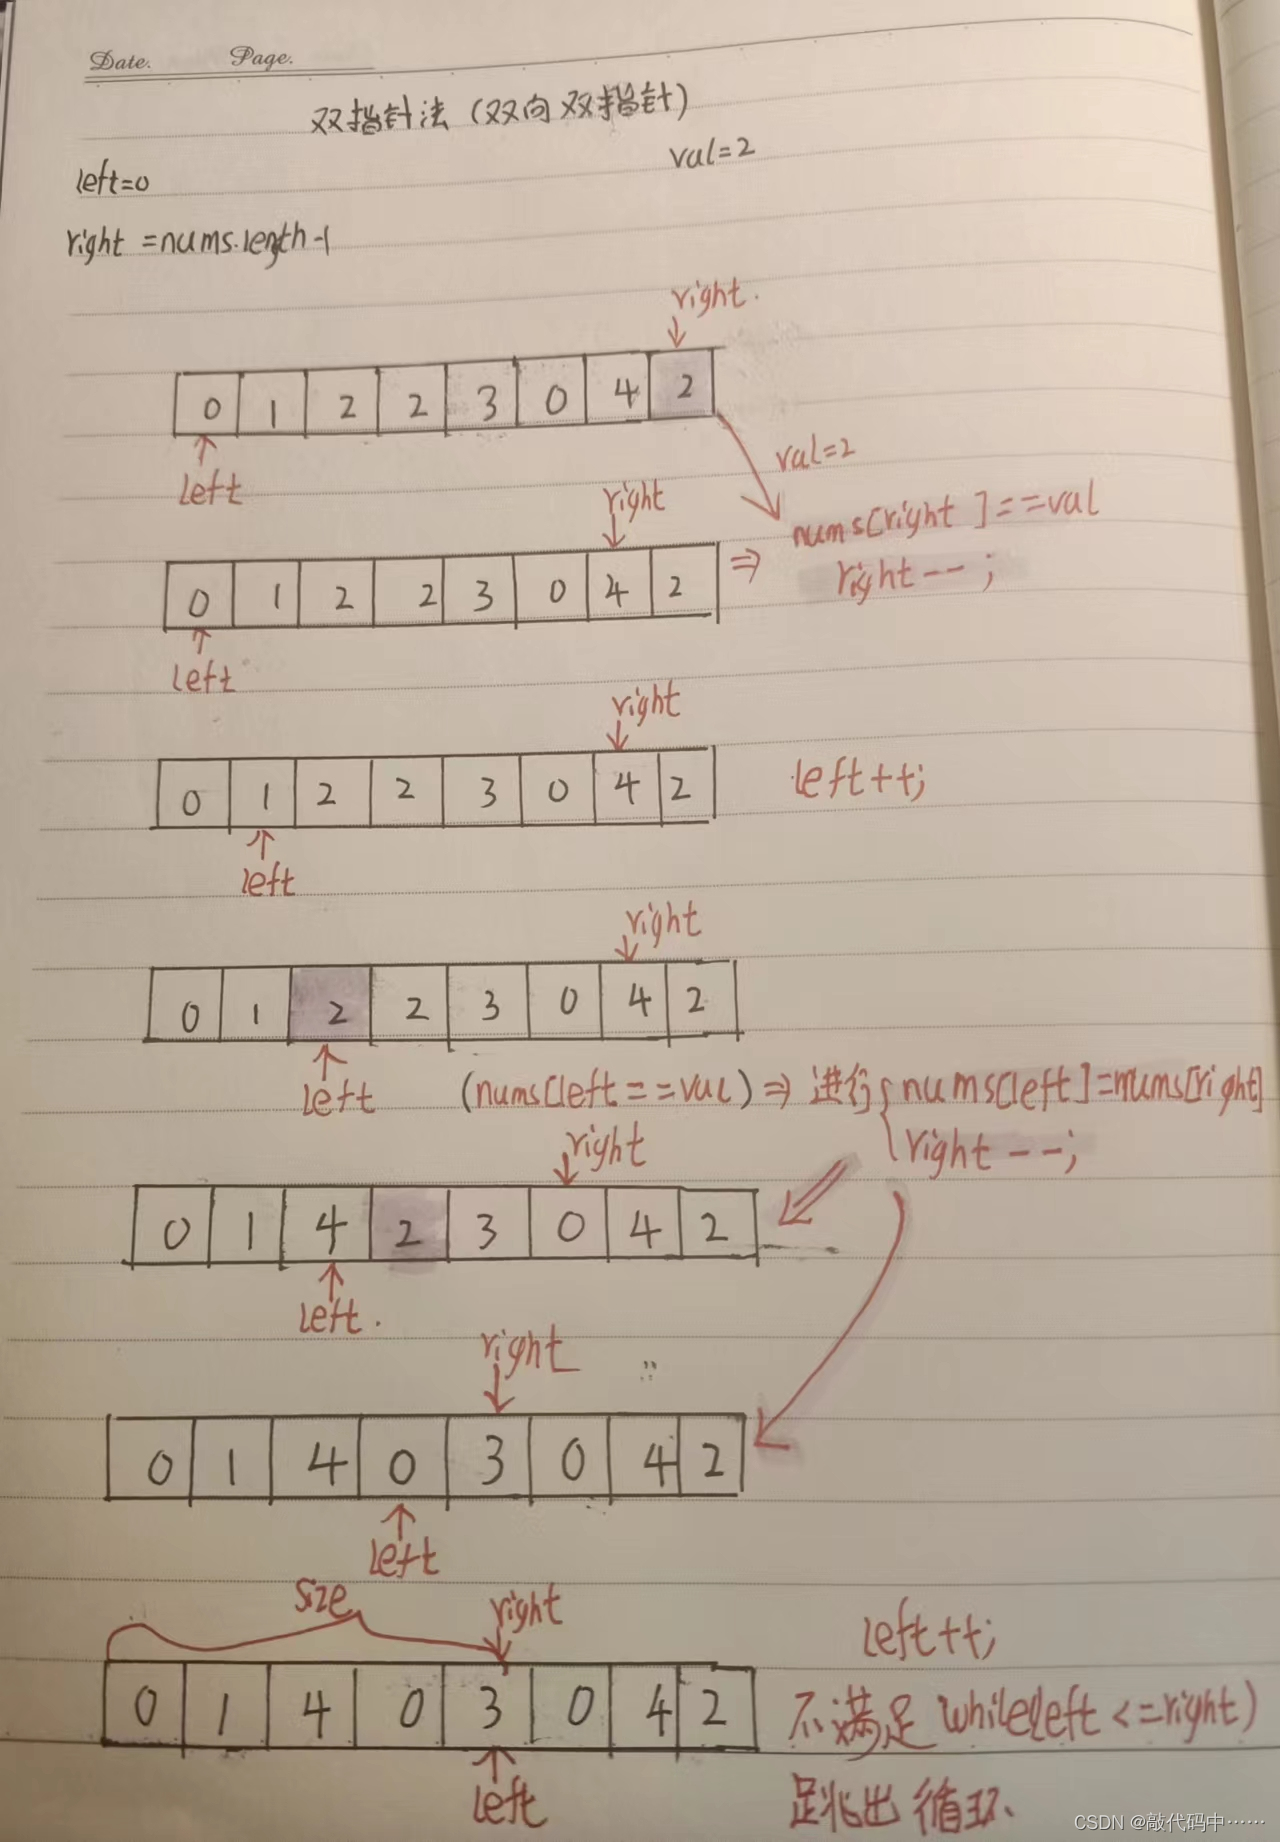 Date. Page.
双指针法（双向双指针）
val=2
left=0
right=nums.length-1
right.
0 1 2 2 3 0 4 2
left
val=2
right
nums[right]==val
0 1 2 2 3 0 4 2 ⇒
right--;
left
right
0 1 2 2 3 0 4 2
left++;
left
right
0 1 2 2 3 0 4 2
left
(nums[left==val) ⇒ 进行{nums[left]=nums[right]
right--;
right
0 1 4 2 3 0 4 2
left.
right
0 1 4 0 3 0 4 2
left
size
right
left++;
0 1 4 0 3 0 4 2
不满足 while(left<=right)
left
跳出循环.
CSDN @敲代码中……